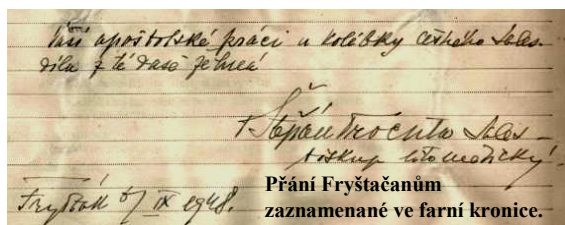 Vaší apoštolské práci u kolébky českého Sales.
díla z té duše žehná
+ Štěpán Trochta Sales
biskup litoměřický.
Fryšták 5/ IX 1948.
Přání Fryštačanům
zaznamenané ve farní kronice.